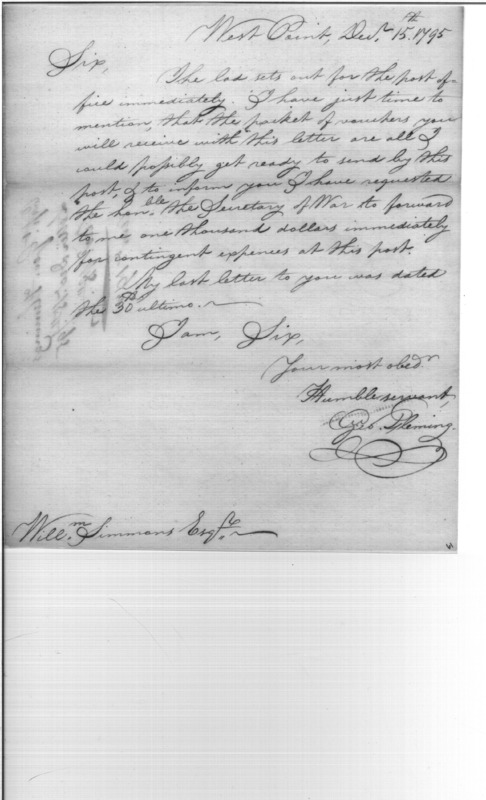 West Point, Decr. 15th. 1795
Sir,
The lad sets out for the post of-
fice immediately. I have just time to
mention, that the packet of vouchers you
will receive with this letter are all I
could possibly get ready to send by this
post, & to inform you I have requested
the honble. the Secretary of War to forward
to me one thousand dollars immediately
for contingent expences at this post.
My last letter to you was dated
the 30th ultimo.
I am, Sir,
Your most obedt.
Humble servant,
Geo. Fleming.
Willm. Simmons Esqre.